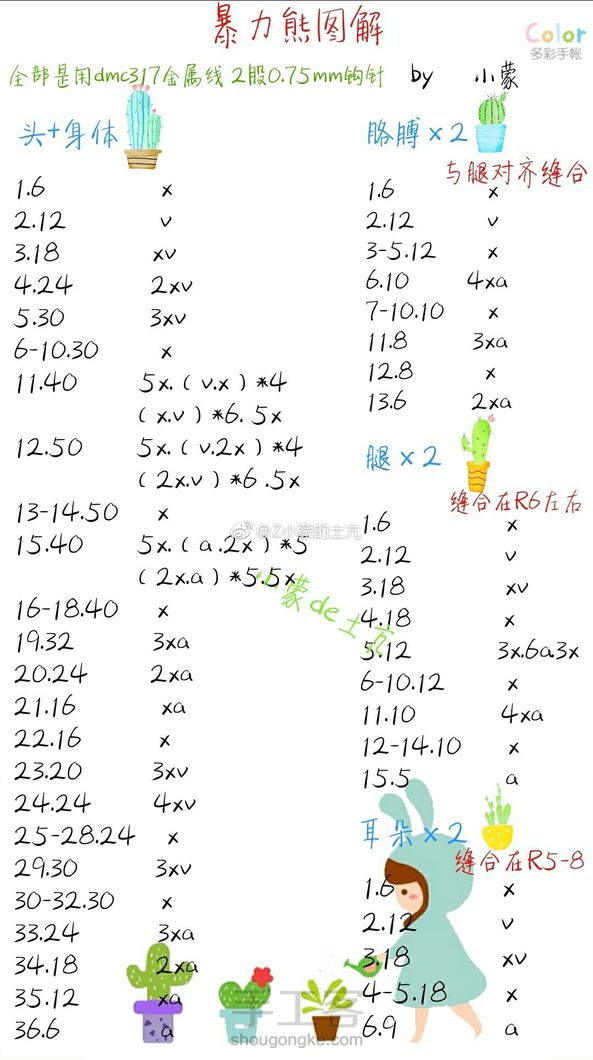 暴力熊图解
Color
多彩手帐
全部是用dmc317金属线 2股0.75mm钩针 by 小蒙
头+身体
1.6 x
2.12 v
3.18 xv
4.24 2xv
5.30 3xv
6-10.30 x
11.40 5x.(v.x)*4
(x.v)*6.5x
12.50 5x.(v.2x)*4
(2x.v)*6.5x
13-14.50 x
15.40 5x.(a.2x)*5
(2x.a)*5.5x
16-18.40 x
19.32 3xa
20.24 2xa
21.16 xa
22.16 x
23.20 3xv
24.24 4xv
25-28.24 x
29.30 3xv
30-32.30 x
33.24 3xa
34.18 2xa
35.12 xa
36.6 a
胳膊x2
与腿对齐缝合
1.6 x
2.12 v
3-5.12 x
6.10 4xa
7-10.10 x
11.8 3xa
12.8 x
13.6 2xa
腿x2
缝合在R6左右
1.6 x
2.12 v
3.18 xv
4.18 x
5.12 3x.6a.3x
6-10.12 x
11.10 4xa
12-14.10 x
15.5 a
耳朵x2
缝合在R5-8
1.6 x
2.12 v
3.18 xv
4-5.18 x
6.9 a
@Z小蒙的土亢
小蒙de土亢
手工客
shougongke.com